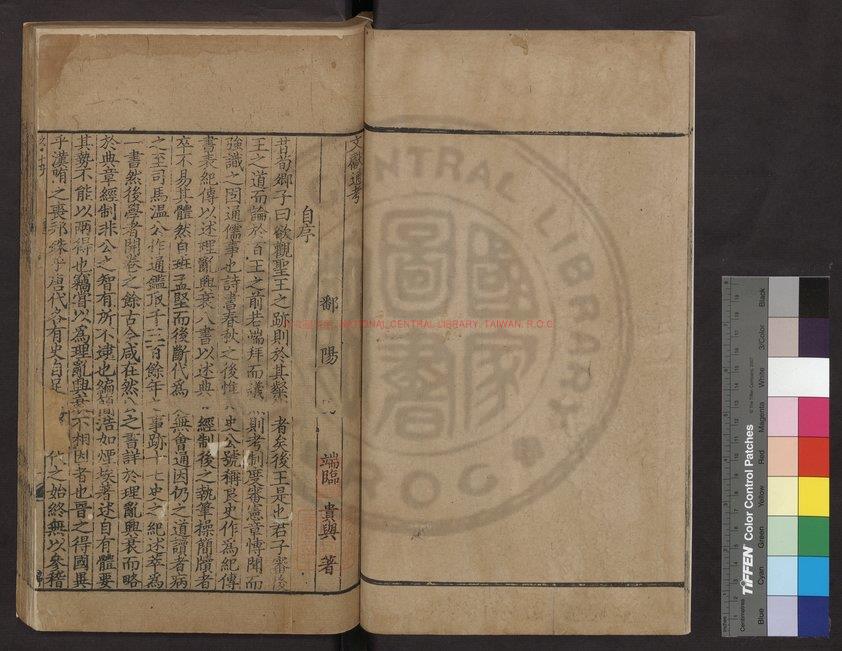 文獻通考
鄱陽 端臨 貴與 著
自序
昔荀卿子曰欲觀聖王之跡則於其粲 者矣後王是也君子審後
王之道而論於百王之前若端拜而議 則考制度審憲章博聞而
強識之固通儒事也詩書春秋之後惟 史公號稱良史作為紀傳
書表紀傳以述理亂興衰八書以述典 經制後之執筆操簡牘者
卒不易其體然自班孟堅而後斷代為 無會通因仍之道讀者病
之至司馬溫公作通鑑取千三百餘年 事跡十七史之紀述萃為
一書然後學者開卷之餘古今咸在然公之書詳於理亂興衰而略
於典章經制非公之智有所不逮也編簡浩如煙埃著述自有體要
其勢不能以兩得也竊嘗以為理亂興衰不相因者也晉之得國異
乎漢隋之喪邦殊乎唐代各有史自足 代之始終無以參稽
NATIONAL CENTRAL LIBRARY, TAIWAN, R.O.C
CENTRAL LIBRARY
R O C
國家圖書
TIFFEN Color Control Patches
© The Tiffen Company, 2007
Centimetres
Inches
Blue
Cyan
Green
Yellow
Red
Magenta
White
3/Color
Black